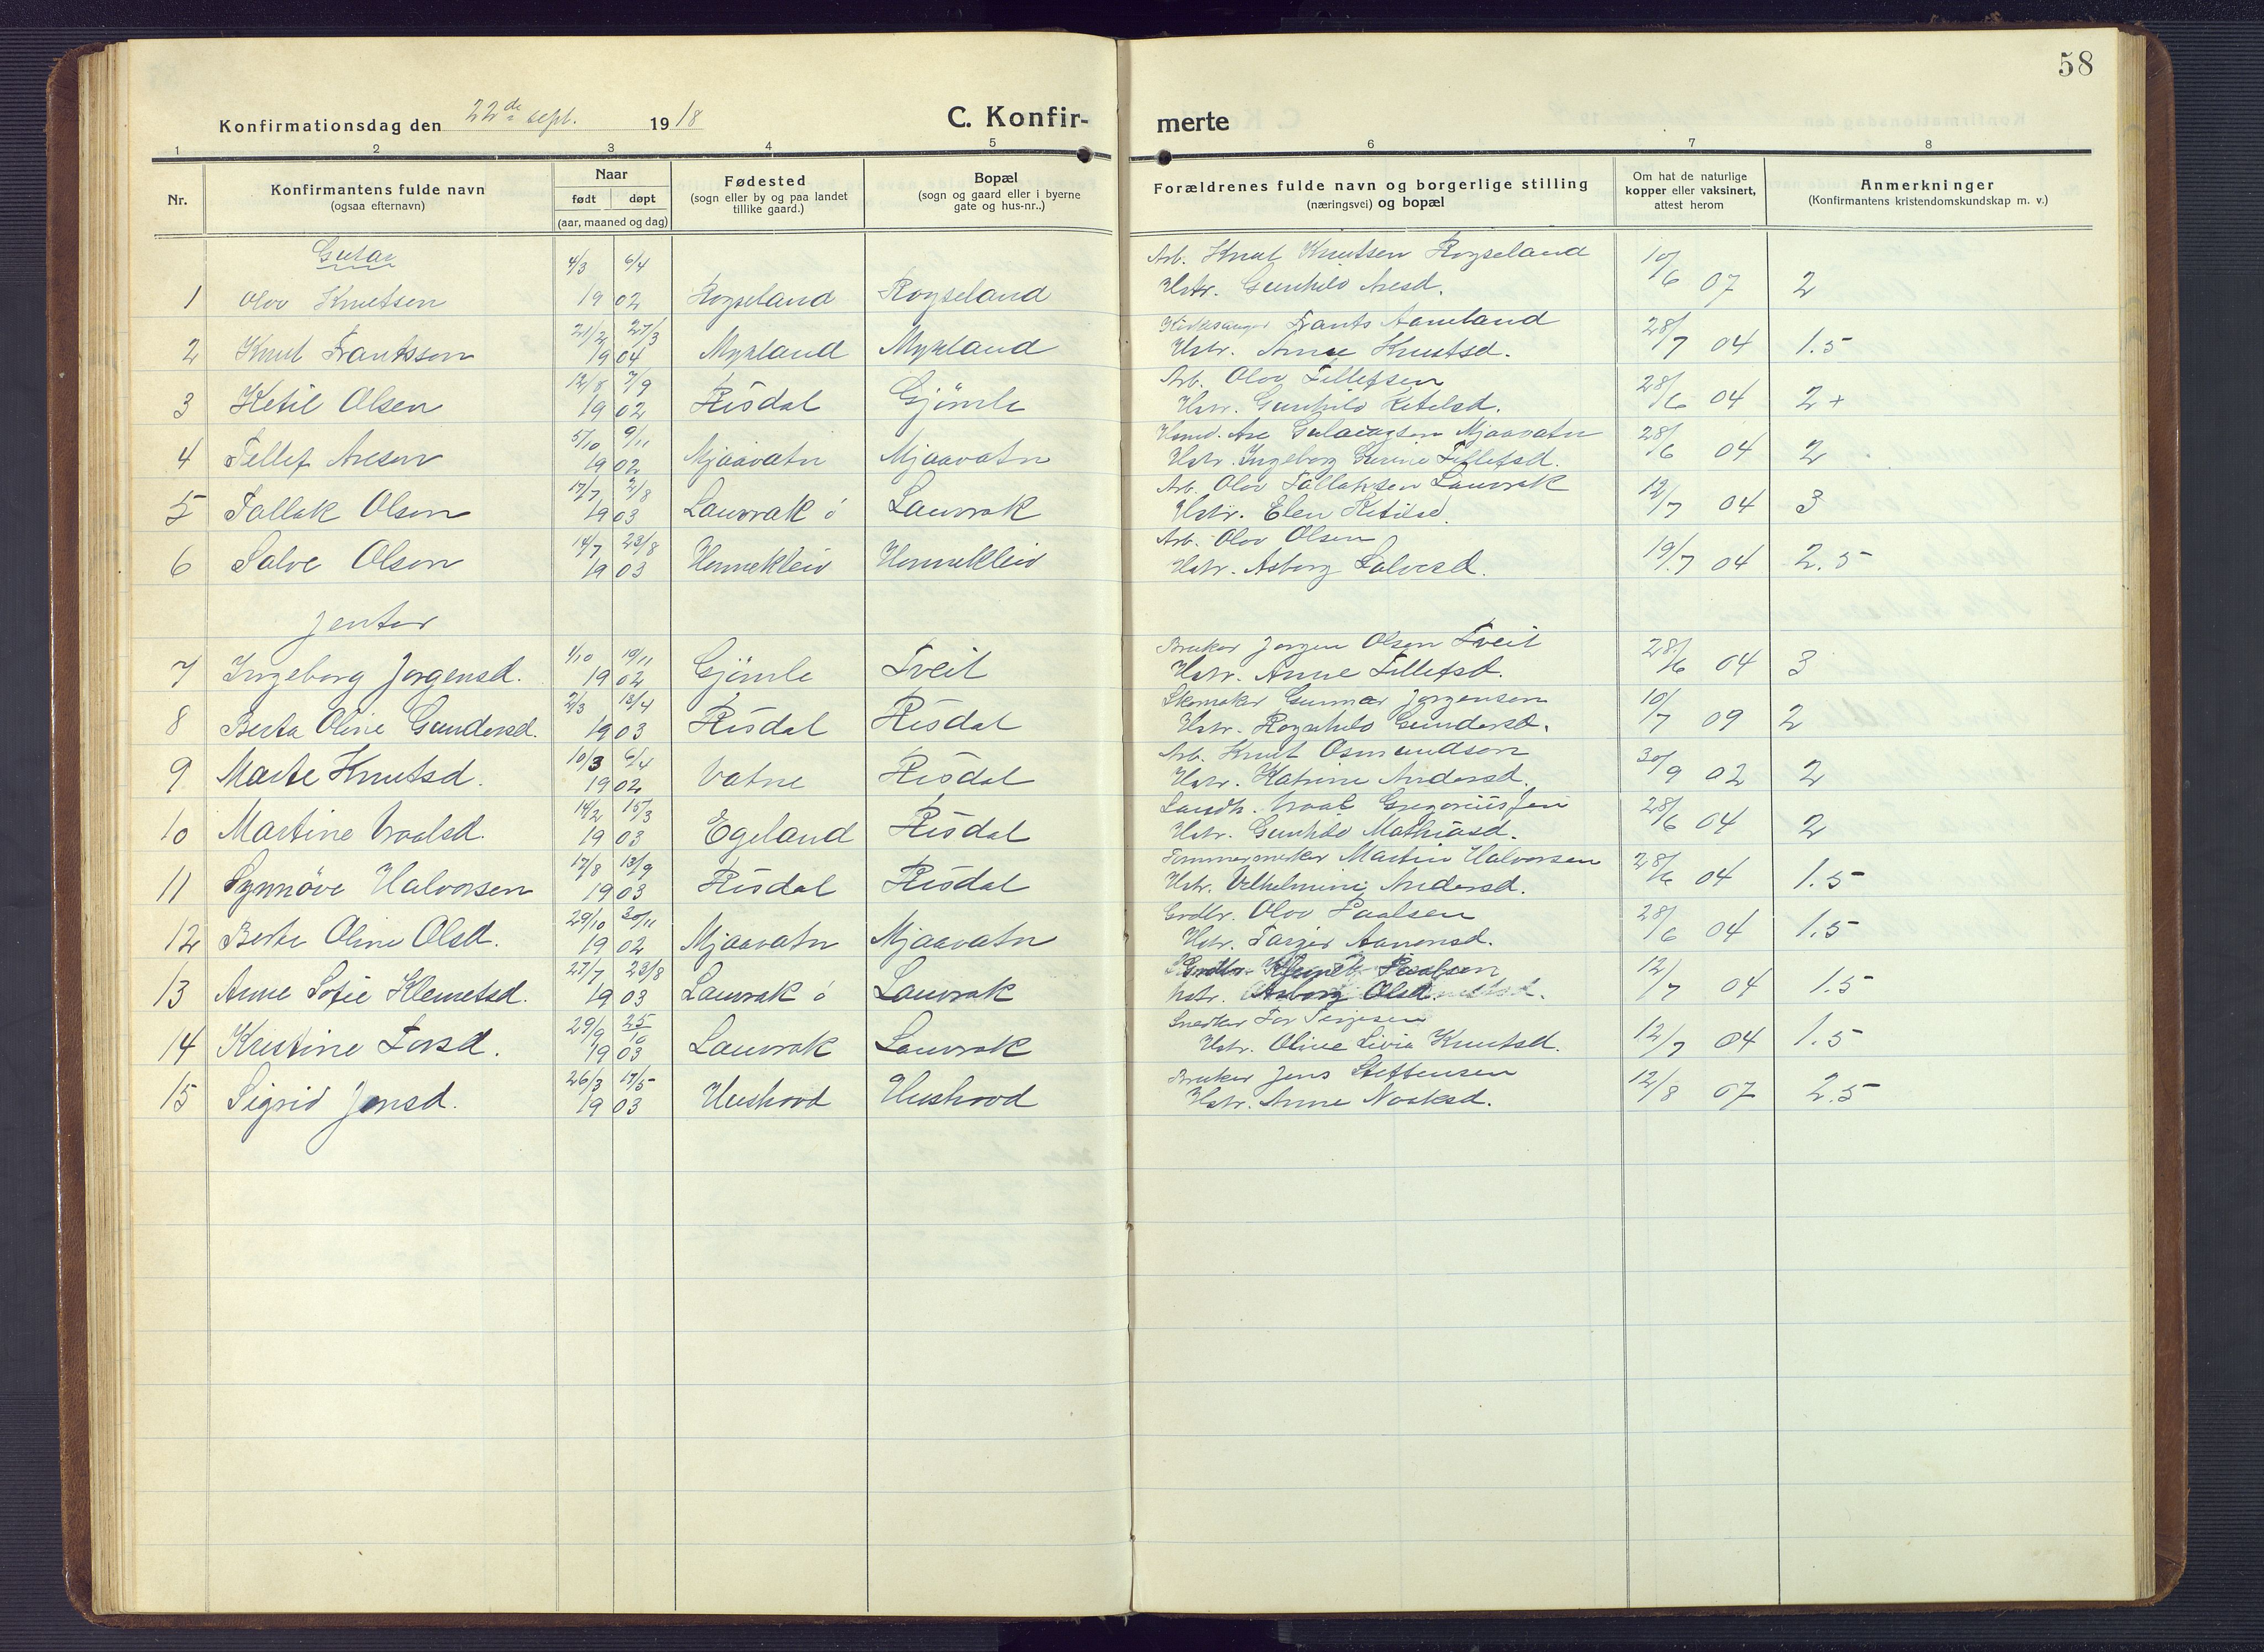 58
Konfirmationsdag den 22de sept. 1918
C. Konfir-
merte
1 2 3 4 5 6 7 8
Nr.
Konfirmantens fulde navn
(ogsaa efternavn)
Naar
født døpt
(aar, maaned og dag)
Fødested
(sogn eller by og paa landet
tillike gaard.)
Bopæl
(sogn og gaard eller i byerne
gate og hus-nr..)
Forældrenes fulde navn og borgerlige stilling
(næringsvei) og bopæl
Om hat de naturlige
kopper eller vaksinert,
attest herom
Anmerkninger
(Konfirmantens kristendomskundskap m. v.)
Gutar
4/3 6/4 Arb. Knut Knutsen Røyseland 10/6
1 Olov Knutsen 1902 Røyseland Røyseland Hstr. Gunhild Aresd. 07 2
21/2 27/3 Kirkesanger Frants Aamland 28/7
2 Knut Frantsson 1904 Mykland Mykland Hstr. Anne Knutsd. 04 1.5
12/8 7/9 Arb. Olov Tellefsen 28/6
3 Ketil Olsen 1902 Risdal Gjömle Hstr. Gunhild Ketilsd. 04 2+
5/10 9/11 Are Mjaavatn 28/6
4 Tellef Aresen 1902 Mjaavatn Mjaavatn Hstr. Ingeborg Gurine Tellefsd. 04 2
17/7 2/8 Arb. Olov Tallaksen Lauvrak 12/7
5 Tallak Olsen 1903 Lauvrak ö Lauvrak Hstr. Elen Ketilsd. 04 3
14/7 23/8 Arb. Olov Olsen
6 Salve Olsen 1903 Honnekleiv Honnekleiv Hstr. Asborg Salvesd. 19/7 04 2.5
Jentor
1/10 19/11 Bruker Jørgen Olsen Tveit 28/6
7 Ingeborg Jørgensd. 1902 Gjömle Tveit Hstr. Anne Tellefsd. 04 3
2/3 13/4 Skomaker Gunnar Jørgensen 10/7
8 Berta Oline Gundersd. 1903 Risdal Risdal Hstr. Rognhild Gundersd. 09 2
10/3 6/4 Arb. Knut Osmundson 30/9
9 Marte Knutsd. 1902 Vatne Risdal Hstr. Katrine Andersd. 02 2
14/2 15/3 Landh. Vraal Gregoriussen 28/6
10 Martine Vraalsd. 1903 Egeland Risdal Hstr. Gunhild Mathiasd. 04 2
17/8 13/9 Martin Halvorsen 28/6
11 Synnöve Halvorsen 1903 Risdal Risdal Hstr. Vilhelmine Andersd. 04 1.5
29/10 30/11 Grdbr. Olov Paalsen 28/6
12 Berte Oline Olsd. 1902 Mjaavatn Mjaavatn Hstr. Targjer Aanonsd. 04 1.5
27/7 23/8 12/7
13 Anne Sofie Klemetsd. 1903 Lauvrak ö Lauvrak Hstr. Asborg Olsd. 04 1.5
29/9 25/10 Snedker Tor Terjesen
14 Kristine Torsd. 1903 Lauvrak Lauvrak Hstr. Oline Livia Knutsd. 12/7 04 1.5
26/3 17/5 Bruker Jens Steffensen
15 Sigrid Jensd. 1903 Hushovd Hushovd Hstr. Anne Noaksd. 12/8 07 2.5